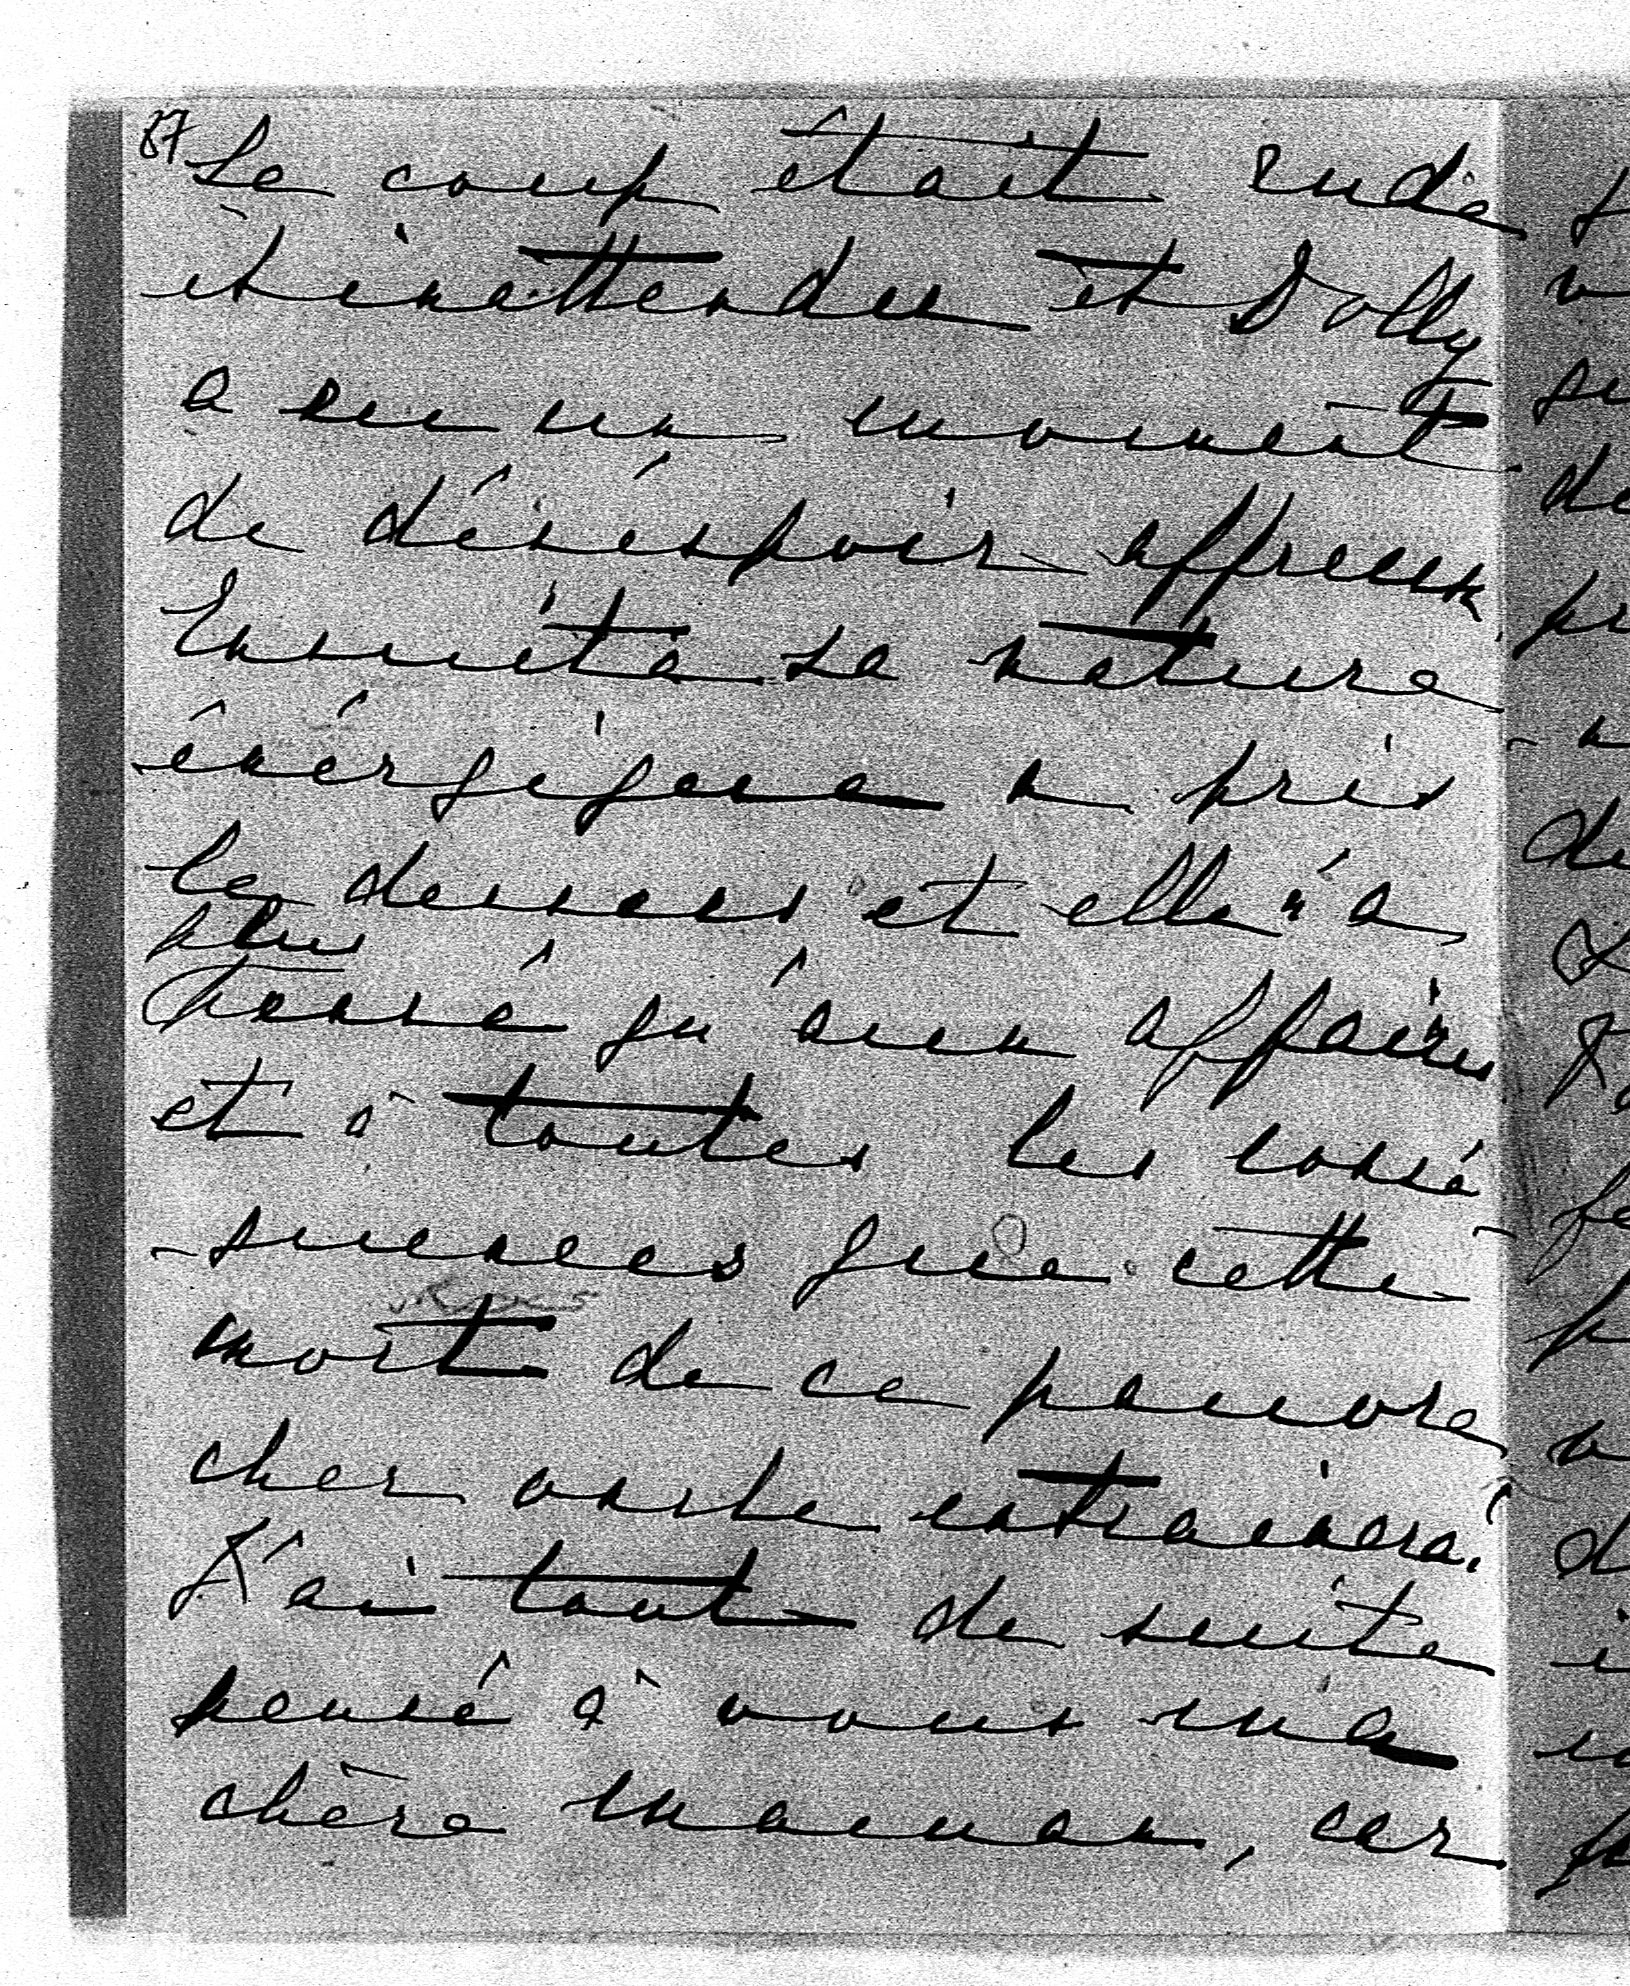 87
Le coup était rude
et inattendu et Dolly
a eu un moment
de désespoir affreux.
Ensuite sa nature
énérgique a pris
le dessus et elle n'a
plus
pensé qu'aux affaires
et à toutes les consé-
-quences que cette
mort de ce pauvre
cher oncle entrainera.
J'ai tout de suite
pensé à vous ma
chère maman, car